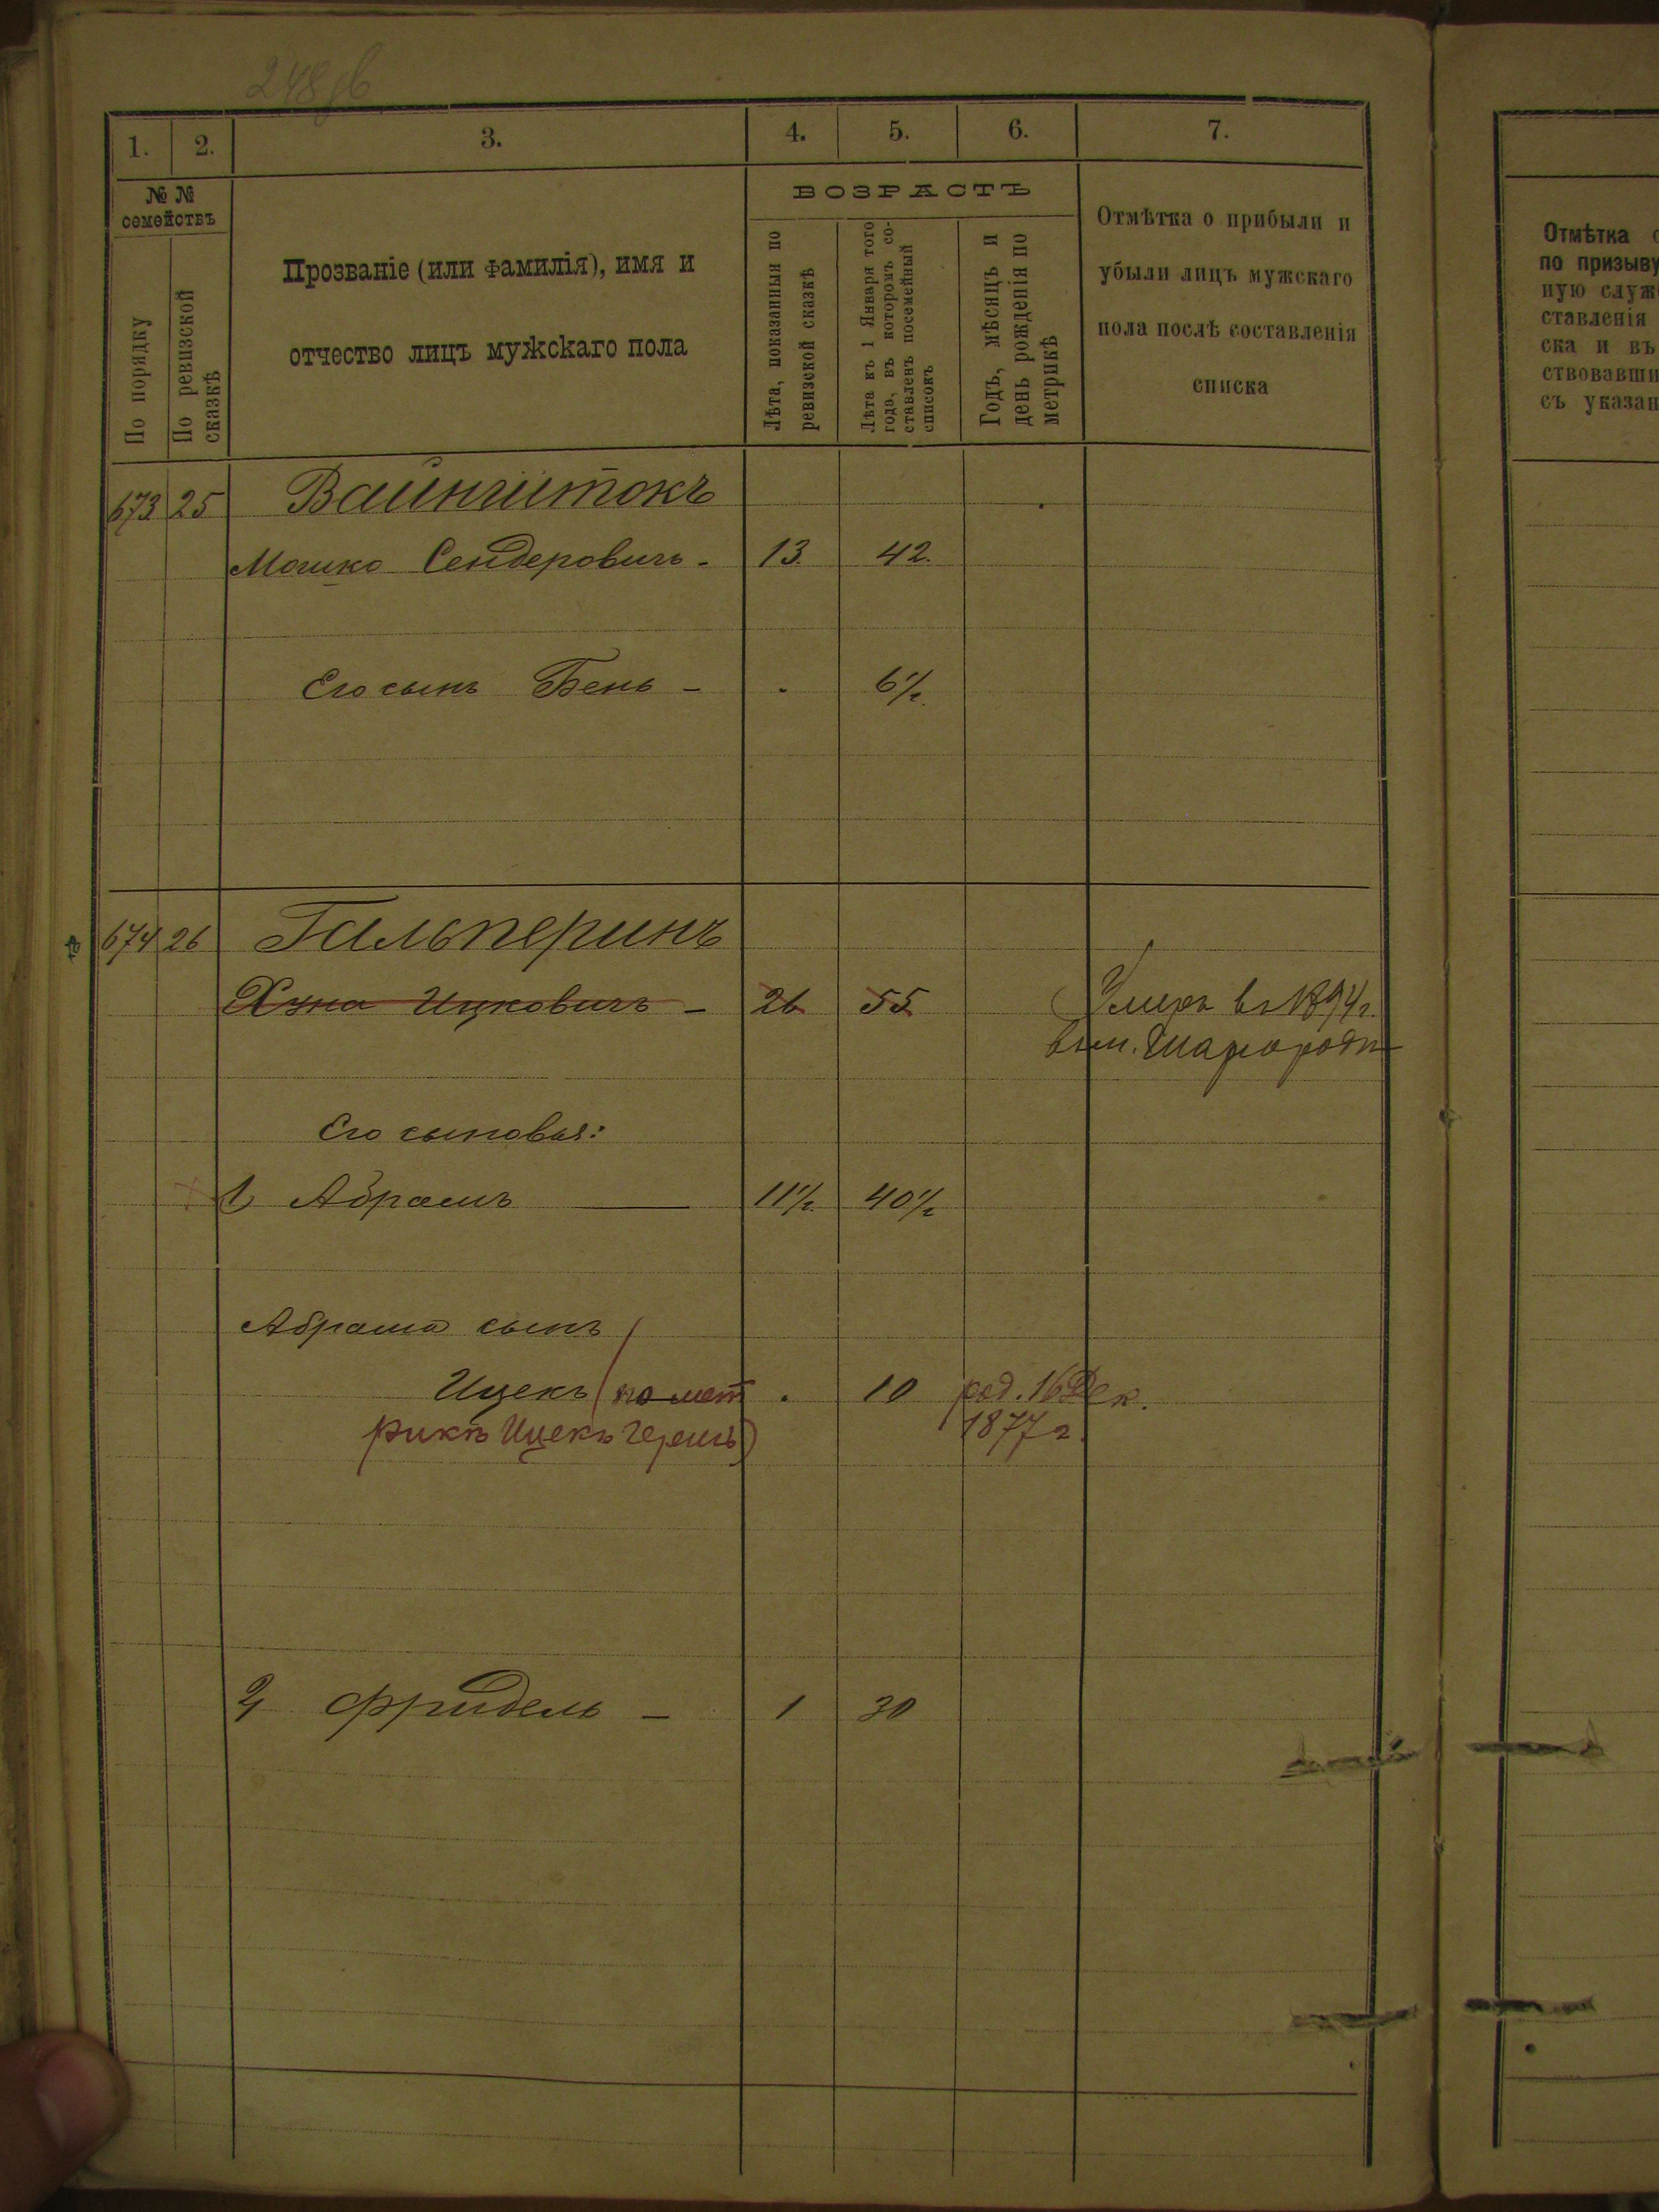 248об
1. 2. 3. 4. 5. 6. 7.
№ №
семействъ
По порядку
По ревизской
сказкѣ
Прозваніе (или фамилія), имя и
отчество лицъ мужскаго пола
ВОЗРАСТЪ
Лѣта, показанныя по
ревизской сказкѣ
Лѣта къ 1 Января того
года, въ которомъ со-
ставленъ посемейный
списокъ
Годъ, мѣсяцъ и
день рожденія по
метрикѣ
Отмѣтка о прибыли и
убыли лицъ мужскаго
пола послѣ составленія
списка
673 25 Вайнштокъ
Мошко Сендеровичъ - 13. 42.
Его сынъ Бень - . 6½
674 26 Гальперинъ
Хуна Ицковичъ - 26 55 Умеръ въ 1894 г.
въ м. Шаргородѣ
Его сыновья:
1, Абрамъ 11½ 40½
Абрама сынъ
Ицекъ (по мет . 10 род. 16 Дек.
рикѣ Ицекъ Гершъ) 1877 г.
2, Фридель - 1 30
Отмѣтка
по призыву
ную служ
ставленія
ска и въ
ствовавши
съ указан